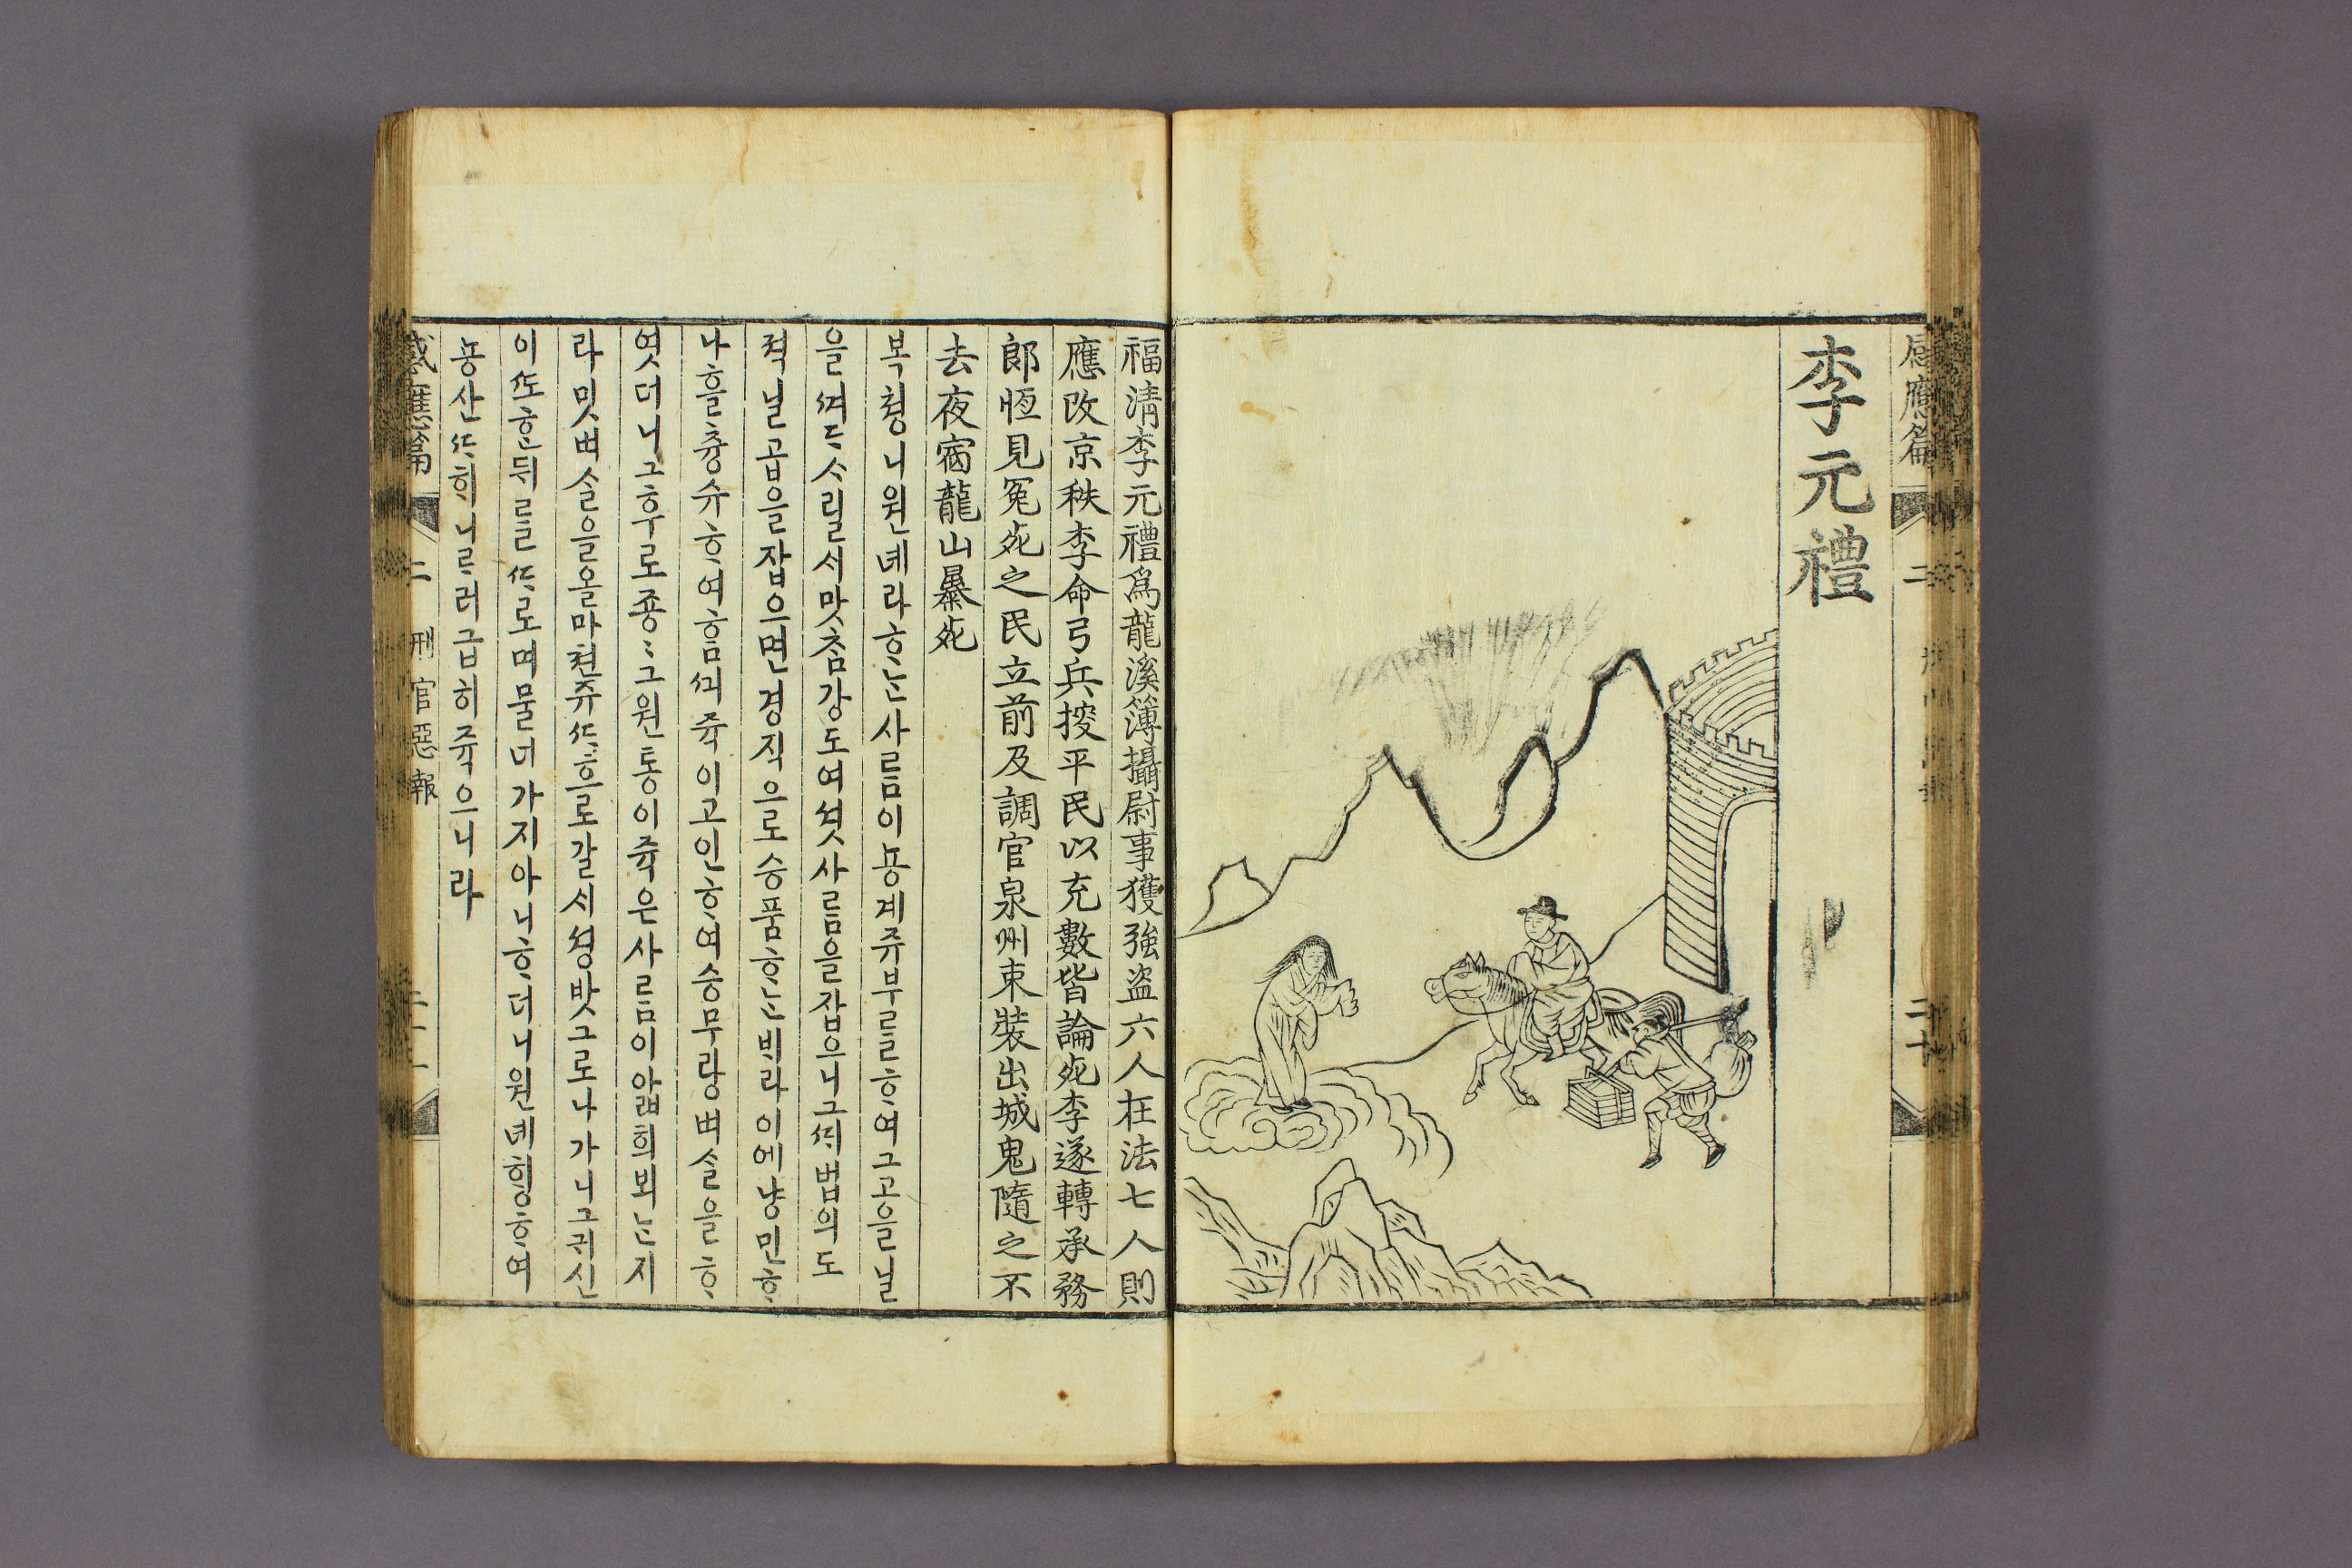 感應篇 二
李元禮
福淸李元禮爲龍溪簿攝尉事獲強盜六人在法七人則
應改京秩李命弓兵搜平民以充數皆論死李遂轉承務
郎恆見冤死之民立前及調官泉州束裝出城鬼隨之不
去夜宿龍山暴死
복쳥니원녜라ᄒᆞᄂᆞᆫ사ᄅᆞᆷ이뇽계쥬부를ᄒᆞ여그고을닐
을ᄭᅧᄃᆞᄉᆞ릴ᄉᆡ맛ᄎᆞᆷ강도여ᄉᆞᆺ사ᄅᆞᆷ을잡으니그ᄯᅢ법의도
젹닐곱을잡으면경직으로승품ᄒᆞᄂᆞᆫ비라이에냥민ᄒᆞ
나흘츙슈ᄒᆞ여ᄒᆞᆷᄭᅴ쥭이고인ᄒᆞ여승무랑벼슬을ᄒᆞ
엿더니그후로죵〻그원통이쥭은사ᄅᆞᆷ이압희뵈ᄂᆞᆫ지
라밋벼슬을올마쳔쥬ᄯᅡ흐로갈ᄉᆡ셩밧그로나가니귀신
이ᄯᅩᄒᆞᆫ뒤를ᄯᆞ로며물너가지아니ᄒᆞ더니원녜ᄒᆡᆼᄒᆞ여
뇽산ᄯᅡᄒᆡ니르러급히쥭으니라
感應篇 二 刑官惡報